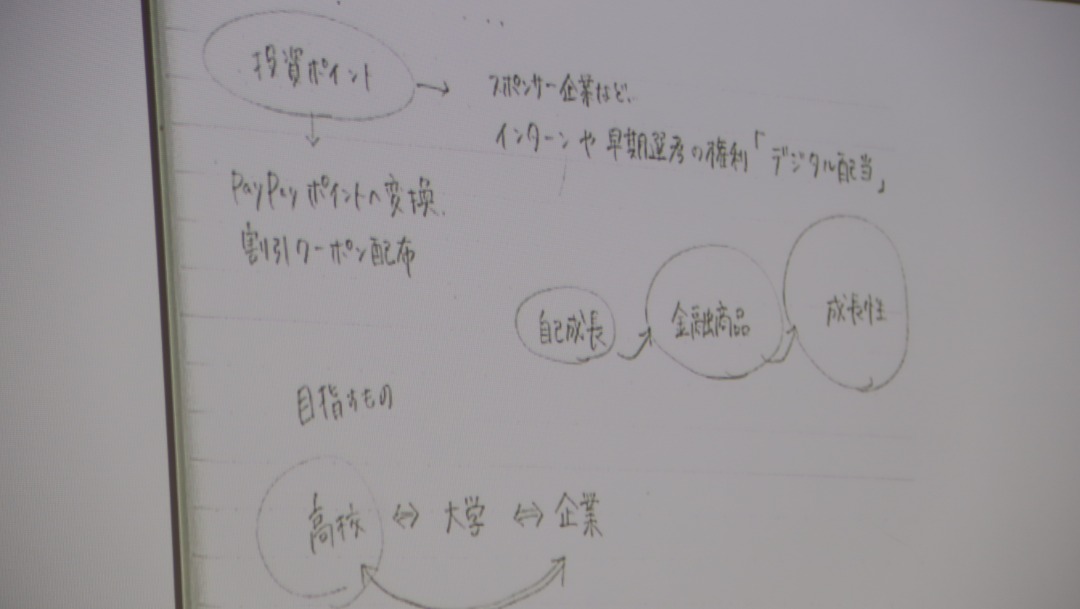 投資ポイント →
スポンサー企業など、
インターンや早期選考の権利「デジタル配当」
↓
PayPayポイントへ変換、
割引クーポン配布
自己成長 → 金融商品 → 成長性
目指すもの
高校 ⇔ 大学 ⇔ 企業